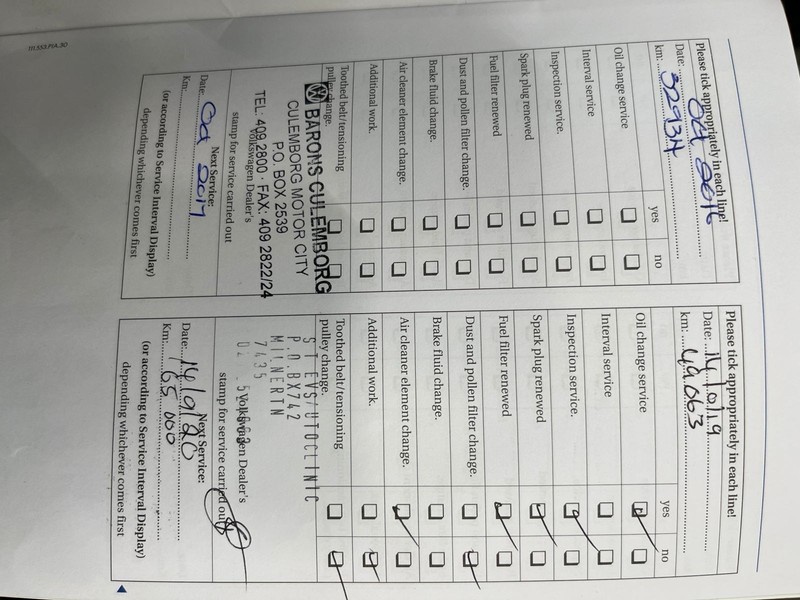 Please tick appropriately in each line!
Date: Oct 2016
km: 32934
yes no
Oil change service
Interval service
Inspection service.
Spark plug renewed
Fuel filter renewed
Dust and pollen filter change.
Brake fluid change.
Air cleaner element change.
Additional work.
Toothed belt/tensioning
pulley change.
BARONS CULEMBORG
CULEMBORG MOTOR CITY
P.O. BOX 2539
TEL: 409 2800 · FAX: 409 2822/24
Volkswagen Dealer's
stamp for service carried out
Next Service:
Date: Oct 2017
Km:
(or according to Service Interval Display)
depending whichever comes first
Please tick appropriately in each line!
Date:
km: 49063
yes no
Oil change service
Interval service
Inspection service.
Spark plug renewed
Fuel filter renewed
Dust and pollen filter change.
Brake fluid change.
Air cleaner element change.
Additional work.
Toothed belt/tensioning
pulley change.
STEVS/AUTOCLINIC
P.O.BX742
MILNERTN
7435
Volkswagen Dealer's
stamp for service carried out
Next Service:
Date: 14/9/20
Km: 65 000
(or according to Service Interval Display)
depending whichever comes first